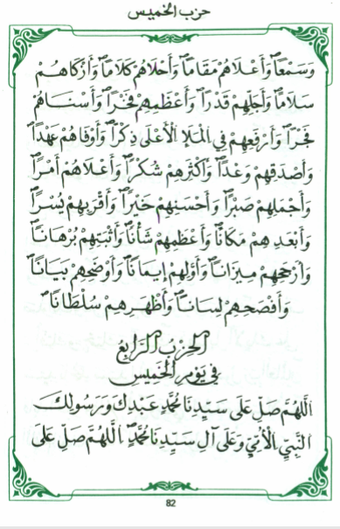 حزب الخميس
وَسَمْعًا وَأَعْلَاهُمْ مَقَامًا وَأَحْلَاهُمْ كَلَامًا وَأَزْكَاهُمْ
سَلَامًا وَأَجَلِّهِمْ قَدْرًا وَأَعْظَمِهِمْ فَخْرًا وَأَسْنَاهُمْ
فَجْرًا وَأَرْفَعِهِمْ فِي الْمَلَإِ الْأَعْلَى ذِكْرًا وَأَوْفَاهُمْ عَهْدًا
وَأَصْدَقِهِمْ وَعْدًا وَأَكْثَرِهِمْ شُكْرًا وَأَعْلَاهُمْ أَمْرًا
وَأَجْمَلِهِمْ صَبْرًا وَأَحْسَنِهِمْ خَيْرًا وَأَقْرَبِهِمْ يُسْرًا
وَأَبْعَدِهِمْ مَكَانًا وَأَعْظَمِهِمْ شَأْنًا وَأَثْبَتِهِمْ بُرْهَانًا
وَأَرْجَحِهِمْ مِيزَانًا وَأَوَّلِهِمْ إِيمَانًا وَأَوْضَحِهِمْ بَيَانًا
وَأَفْصَحِهِمْ لِسَانًا وَأَظْهَرِهِمْ سُلْطَانًا
الْحِزْبُ الرَّابِعُ
فِي يَوْمِ الْخَمِيسِ
اَللّٰهُمَّ صَلِّ عَلَى سَيِّدِنَا مُحَمَّدٍ عَبْدِكَ وَرَسُولِكَ
النَّبِيِّ الْأُمِّيِّ وَعَلَى آلِ سَيِّدِنَا مُحَمَّدٍ اَللّٰهُمَّ صَلِّ عَلَى
82